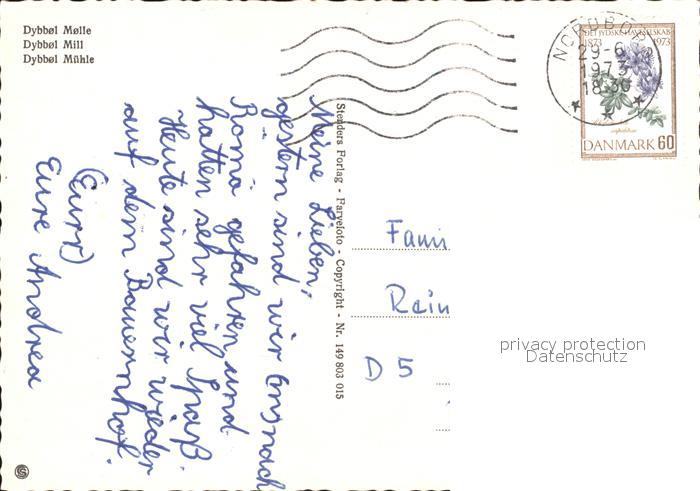 Dybbøl Mølle
Dybbøl Mill
Dybbøl Mühle
NORDBORG
29-6
1973
18-30
DET JYDSKE HAVESELSKAB
1873 1973
DANMARK 60
Stenders Forlag - Farvefoto - Copyright - Nr. 149 803 015
Meine Lieben,
gestern sind wir nach
Romö gefahren und
hatten sehr viel Spaß.
Heute sind wir wieder
auf dem Bauernhof.
(Eure)
Eure Andrea
Fami
Rein
D 5
privacy protection
Datenschutz